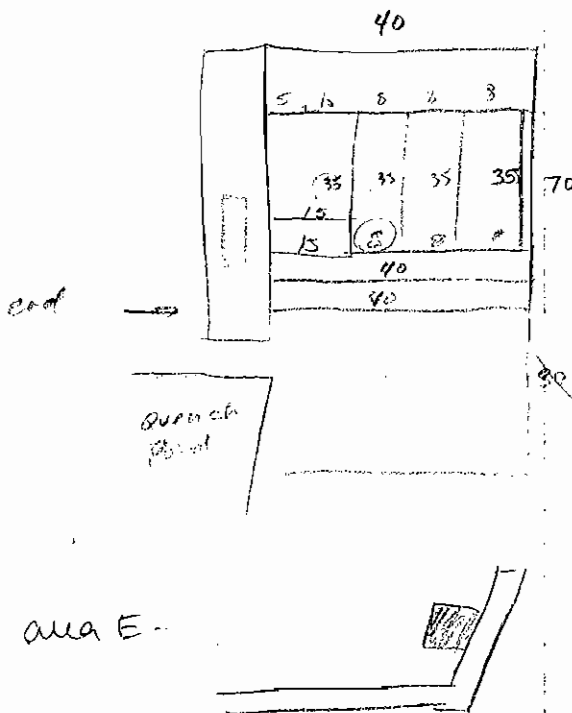 40
5 10 8 8 8
35 35 35 35 70
15
15 8 8
40
40
end
Quench
Pond
area E-